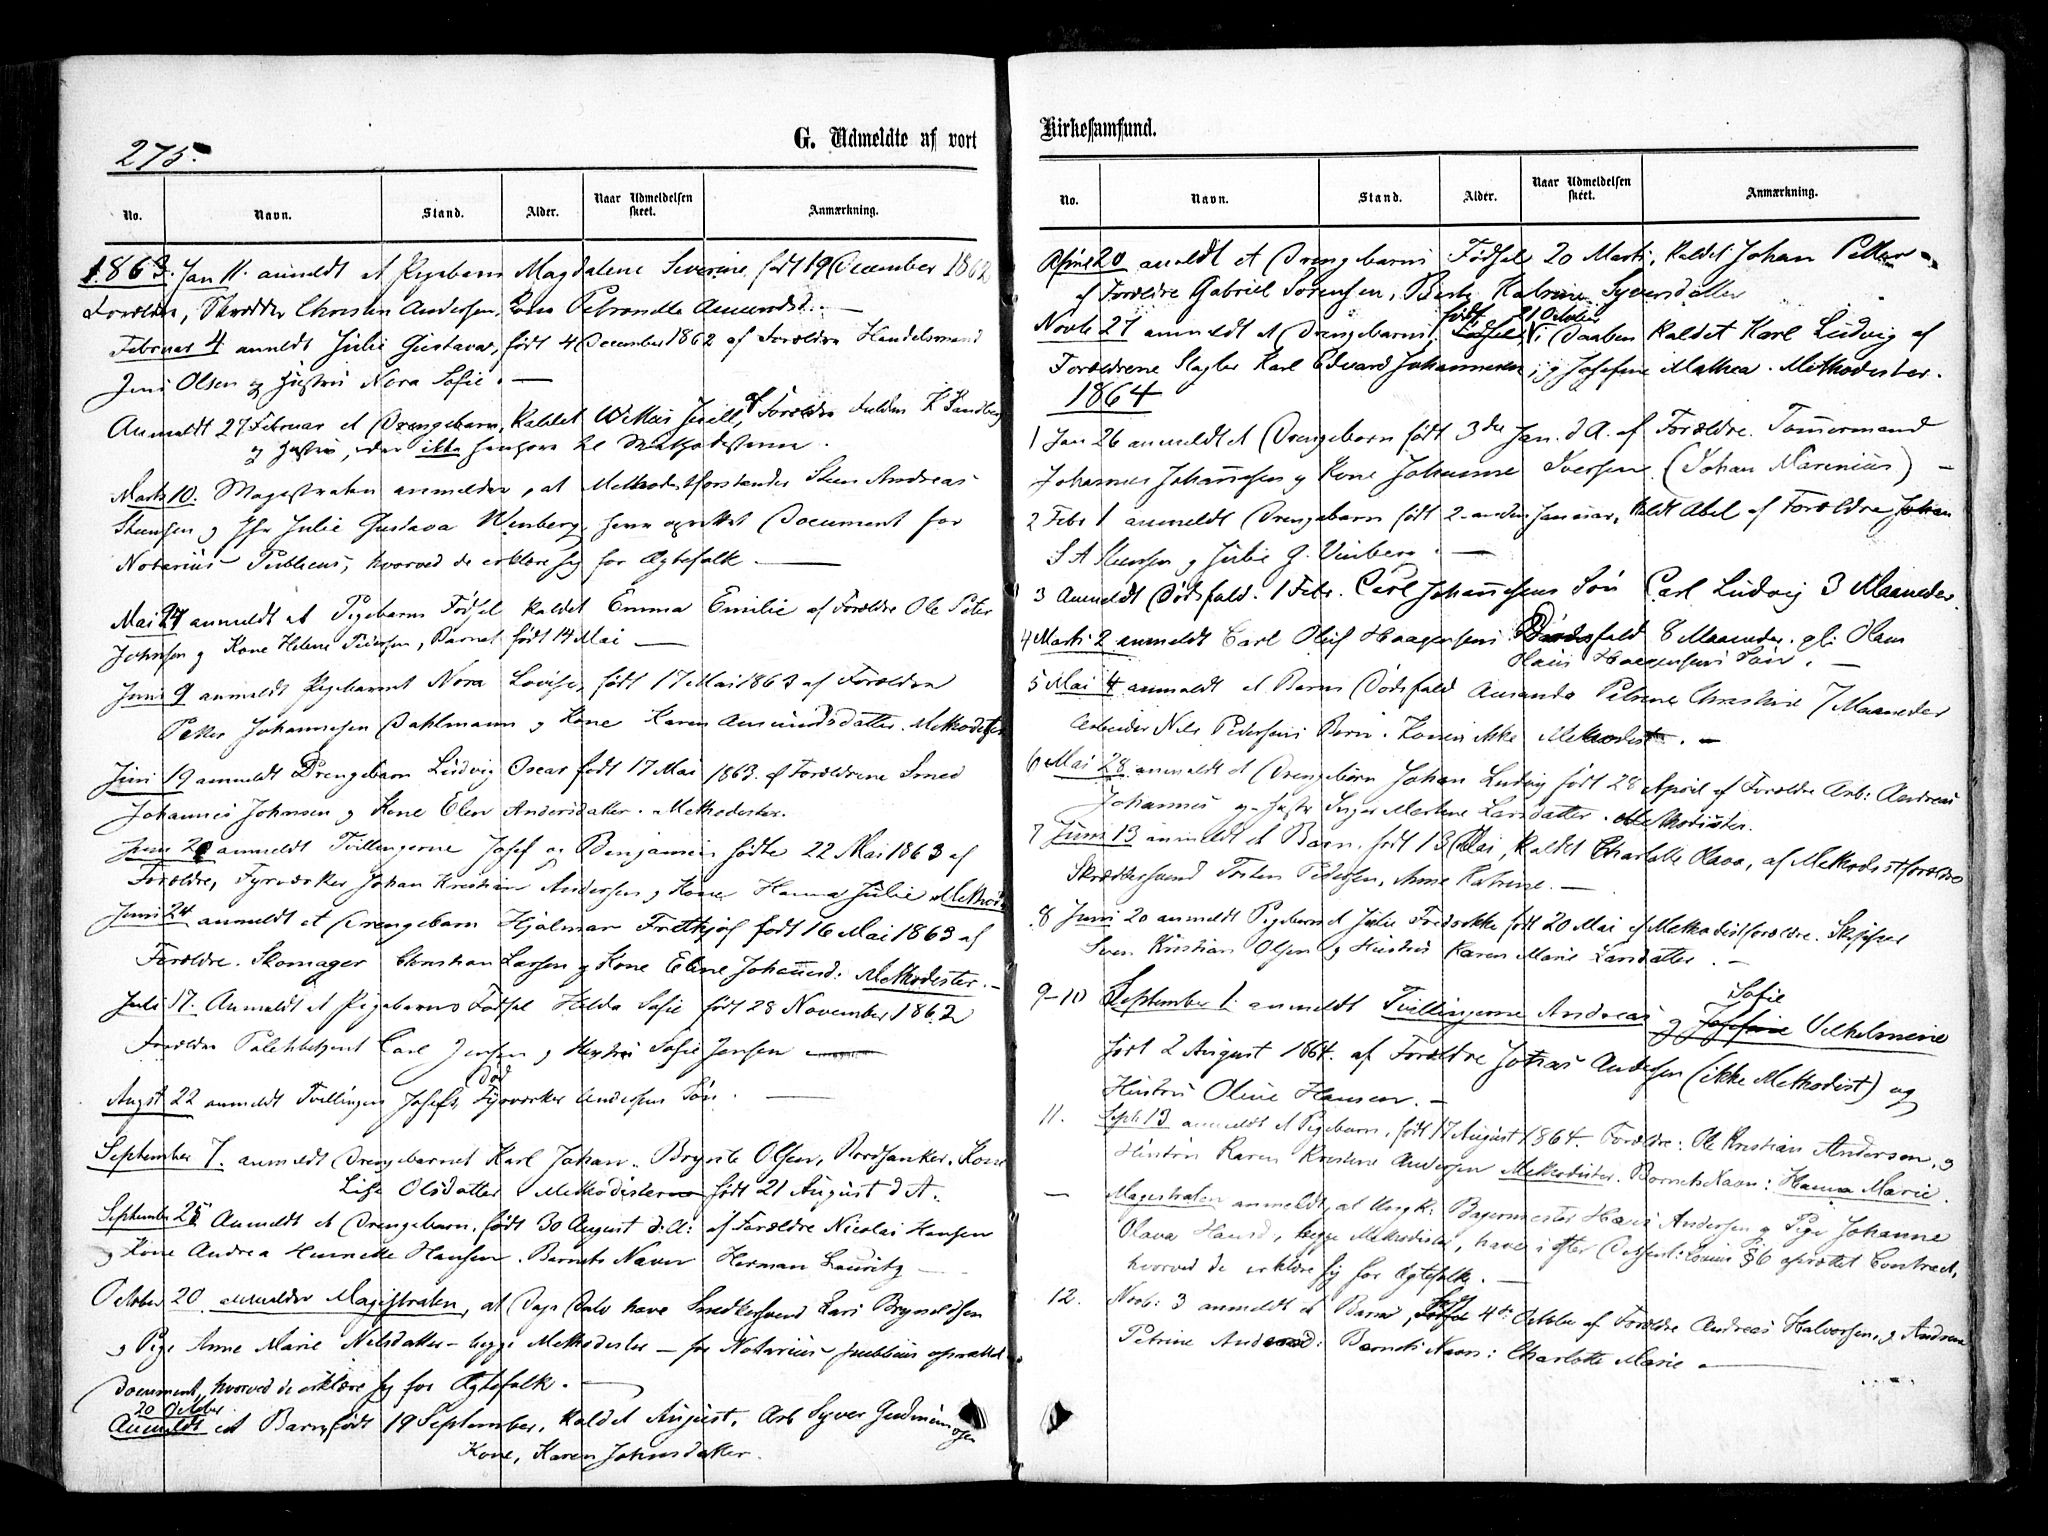 275.
G. Udmeldte af vort
No. Navn. Stand. Alder. Naar Udmeldelsen skeet. Anmærkning.
1863. Jan 11. anmeldt et Pigebarn Magdalene Severine, født 19 December 1862
Forældre, Skrædder Christen Andersen, Kone Petronelle Amundsd. –
Februar 4 anmeldt Julie Gustava, født 4 December 1862 af Forældre Handelsmand
Jens Olsen og Hustru Nora Sofie. –
Anmeldt 27 Februar et Drengebarn, kaldet af Forældre K Sandberg
og Hustru, der ikke henhøre til Methodisterne.
Marts 10. Magistraten anmelder, at Methodistforstander Steen Andreas
Steensen og Jfr Julie Gustava Winberg have oprettet Document for
Notarius Publicus, hvorved de erklære sig for Ægtefolk –
Mai 27 anmeldt et Pigebarns Fødsel kaldet Emma Emilie af Forældre Ole Peter
Johnsen og Kone Helene Pedersen, Barnet født 14 Mai –
Juni 9 anmeldt Pigebarnet Nora Lovise, født 17 Mai 1863 af Forældre
Peter Johannesen Dahlmann og Kone Karen Amundsdatter. Methodister
Juni 19 anmeldt Drengebarn Ludvig Oscar født 17 Mai 1863. af Forældrene Smed
Johannes Johnsen og Kone Elen Andersdatter. Methodister.
Juni 20 anmeldt Tvillingerne Josef og Benjamin fødte 22 Mai 1863 af
Forældre, Fyrværker Johan Kristian Andersen og Kone Hanna Julie Methodi
Juni 24 anmeldt et Drengebarn Hjalmar Frithjof født 16 Mai 1863 af
Forældre. Skomager Christian Larsen og Kone Eline Johannd: Methodister. –
Juli 17. Anmeldt et Pigebarns Fødsel Hilda Sofie født 28 November 1862
Forældre Carl Jensen og Hustru Sofie Jensen
Død
Augst 22 anmeldt Tvillingen Josefs, Fyrværker Andersens Søn. –
September 7. anmeldt Drengebarnet Karl Johan. Brynild Olsen, Kone
Lise Olsdatter Methodisterne født 21 August d A.
September 25 Anmeldt et Drengebarn, født 30 August d: A: af Forældre Nicolai Hansen
og Kone Andrea Henriette Hansen. Barnets Navn Herman Lauritz –
October 20 anmelder Magistraten, at Dags Dato have Snedkersvend Lars Brynildsen
og Pige Anne Marie Nilsdatter – begge Methodister – for Notarius publicus oprettet
Document, hvorved de erklære sig for Ægtefolk. –
20 October
Anmeldt et Barn, født 19 September, kaldet August, Arb Syver Gudmundsen
Kone, Karen Johnsdatter.
Kirkesamfund.
No. Navn. Stand. Alder. Naar Udmeldelsen skeet. Anmærkning.
April 20 anmeldt et Drengebarns Fødsel 20 Marts, kaldet Johan Petter –
af Forældre Gabriel Sørensen, Berthe Katrine Syversdatter
født 21 October
Novbr 27 anmeldt et Drengebarns Fødsel i Daaben kaldet Karl Ludvig af
Forældrene Slagter Karl Edvard Johannesen, og Josefine Mathea. Methodister.
1864
1 Jan 26 anmeldt et Drengebarn født 3die Jan. d A. af Forældre. Tømmermand
Johannes Johannesen og Kone Johanne Iversen (Johan Marinius) –
2 Febr 1 anmeldt Drengebarn født 2-anden Januar, kaldt Abel af Forældre Johan
S A Steensen og Julie G. Vinberg. –
3 Anmeldt Dødsfald. 1 Febr. Carl Johannesens Søn Carl Ludvig 3 Maaneder.
4 Marts 2 anmeldt Carl Oluf Haagensens Dødsfald 8 Maaneder. gl: Olaus
Haagensens Søn. –
5 Mai 4 anmeldt et Barns Dødsfald Amanda Petrine Christine 7 Maaneder
Arbeider Nils Pedersens Barn. Konen ikke Methodist. –
6 Mai 28 anmeldt et Drengebarn Johan Ludvig født 28 April af Forældre Arb: Andreas
Johannes og Hustr Marthine Larsdatter. Methodister.
7 Juni 13 anmeldt et Barn, født 13 Mai, kaldet Charlotte Olava, af Methodistforældre
Skræddersvend Torsten Pedersen, Anne Katrine. –
8 Juni 20 anmeldt Pigebarnet Julie Fredrikke født 20 Mai af Methodistforældre. Skipper
Sven Kristian Olsen og Hustru Karen Marie Larsdatter. –
Sofie
9-10 September 1. anmeldt Tvillingerne Andreas og Josefine Vilhelmine
født 2 August 1864. af Forældre Johan Andersen (ikke Methodist) og
Hustru Oline Hansen. –
11. Septb 13 anmeldt et Pigebarn, født 17 August 1864. Forældre: Ole Kristian Andersen, og
Hustru Karen Kristine Andersen Methodister. Barnets Navn: Hanna Marie.
– Magistraten anmeldt, at Ungk: Bagermester Hans Andersen og Pige Johanne
Olava Hansd, begge Methodister, have i efter Dissenterlovens §6 oprettet Contract,
hvorved de erklære sig for Ægtefolk. –
12. Novb: 3 anmeldt et Barn, født 4de October af Forældre Andreas Halvorsen, og Andrea
Petrine Andersd: Barnets Navn: Charlotte Marie –